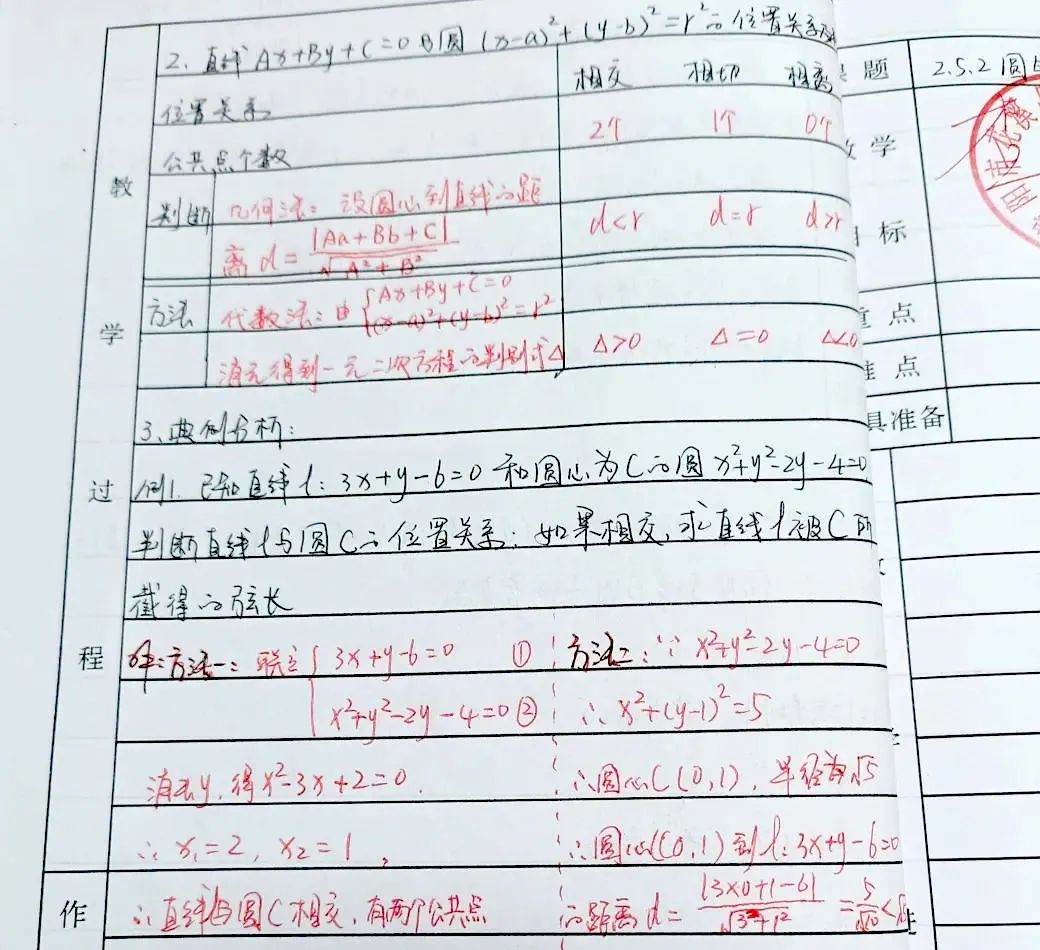 2. 直线 Ax+By+C=0与圆 (x-a)²+(y-b)²=r²的位置关系及
位置关系 相交 相切 相离
公共点个数 2个 1个 0个
教
判断 几何法：设圆心到直线的距
离 d=|Aa+Bb+C|/√(A²+B²) d<r d=r d>r
学
方法 代数法：由{Ax+By+C=0
(x-a)²+(y-b)²=r²
消元得到一元二次方程的判别式Δ Δ>0 Δ=0 Δ<0
3、典例分析：
过
例1. 已知直线 l：3x+y-6=0 和圆心为C的圆 x²+y²-2y-4=0
判断直线l与圆C的位置关系；如果相交，求直线l被C所
截得的弦长
程
解：方法一：联立{3x+y-6=0 ①
x²+y²-2y-4=0 ②
消去y，得x²-3x+2=0.
∴ x₁=2，x₂=1，
作
∴直线l与圆C相交，有两个公共点
方法二：∵ x²+y²-2y-4=0
∴ x²+(y-1)²=5
∴圆心C(0,1)，半径为√5
∴圆心C(0,1)到l：3x+y-6=0
的距离 d=|3×0+1-6|/√(3²+1²)=5/√10<√5
题 2.5.2 圆
学
目标
重点
难点
具准备